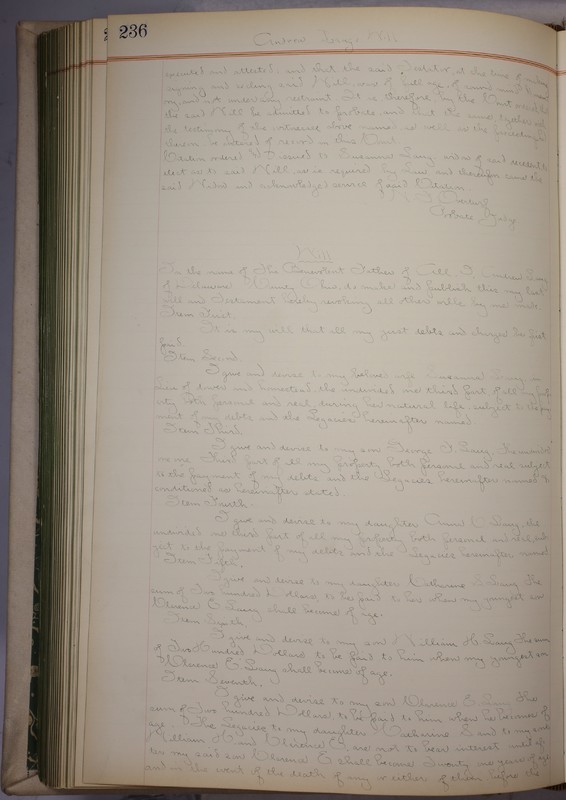 236
Andrew Long's Will
executed and attested, and that the said Testator at the time of making
signing and sealing said Will, was of full age, of sound mind and memory
and not under any restraint. It is therefore by the Court ordered that
the said Will be admitted to probate and that the same, together with
the testimony of the witnesses above named as well as the proceedings
herein be entered of record in this Court
Citation ordered issued to Susanna widow of said decedent to
elect as to said Will, as is required by law and thereupon came the
said Widow and acknowledged service of said Citation
Probate Judge
Will
In the name of the Benevolent Father of All, I, Andrew
of Delaware County Ohio, do make and publish this my last
Will and Testament hereby revoking all other wills by me made
Item First.
It is my will that all my just debts and charges be first
paid
Item Second.
I give and devise to my beloved wife Susanna in
lieu of dower and homestead the undivided one third part of all my property
both personal and real, during her natural life, subject to the payment
of my debts and the Legacies hereinafter named
Item Third
I give and devise to my son George the undivided
one third part of all my property both personal and real subject
to the payment of my debts and the Legacies hereinafter named &
conditioned as hereinafter stated.
Item Fourth.
I give and devise to my daughter the
undivided one third part of all my property both personal and real, subject
to the payment of my debts and the Legacies hereinafter named
Item Fifth.
I give and devise to my daughter Catharine E. the
sum of Two hundred Dollars, to be paid to her when my youngest son
Clarence E. shall become of age.
Item Sixth.
I give and devise to my son William H. the sum
of Two Hundred Dollars to be paid to him when my youngest son
Clarence E. shall become of age.
Item Seventh.
I give and devise to my son Clarence E. the
sum of Two hundred Dollars, to be paid to him when he becomes of
age. The Legacies to my daughter Catharine E. and to my sons
William H. and Clarence E. are not to bear interest until after
my said son Clarence E. shall become Twenty one years of age
and in the event of the death of any or either of them before the